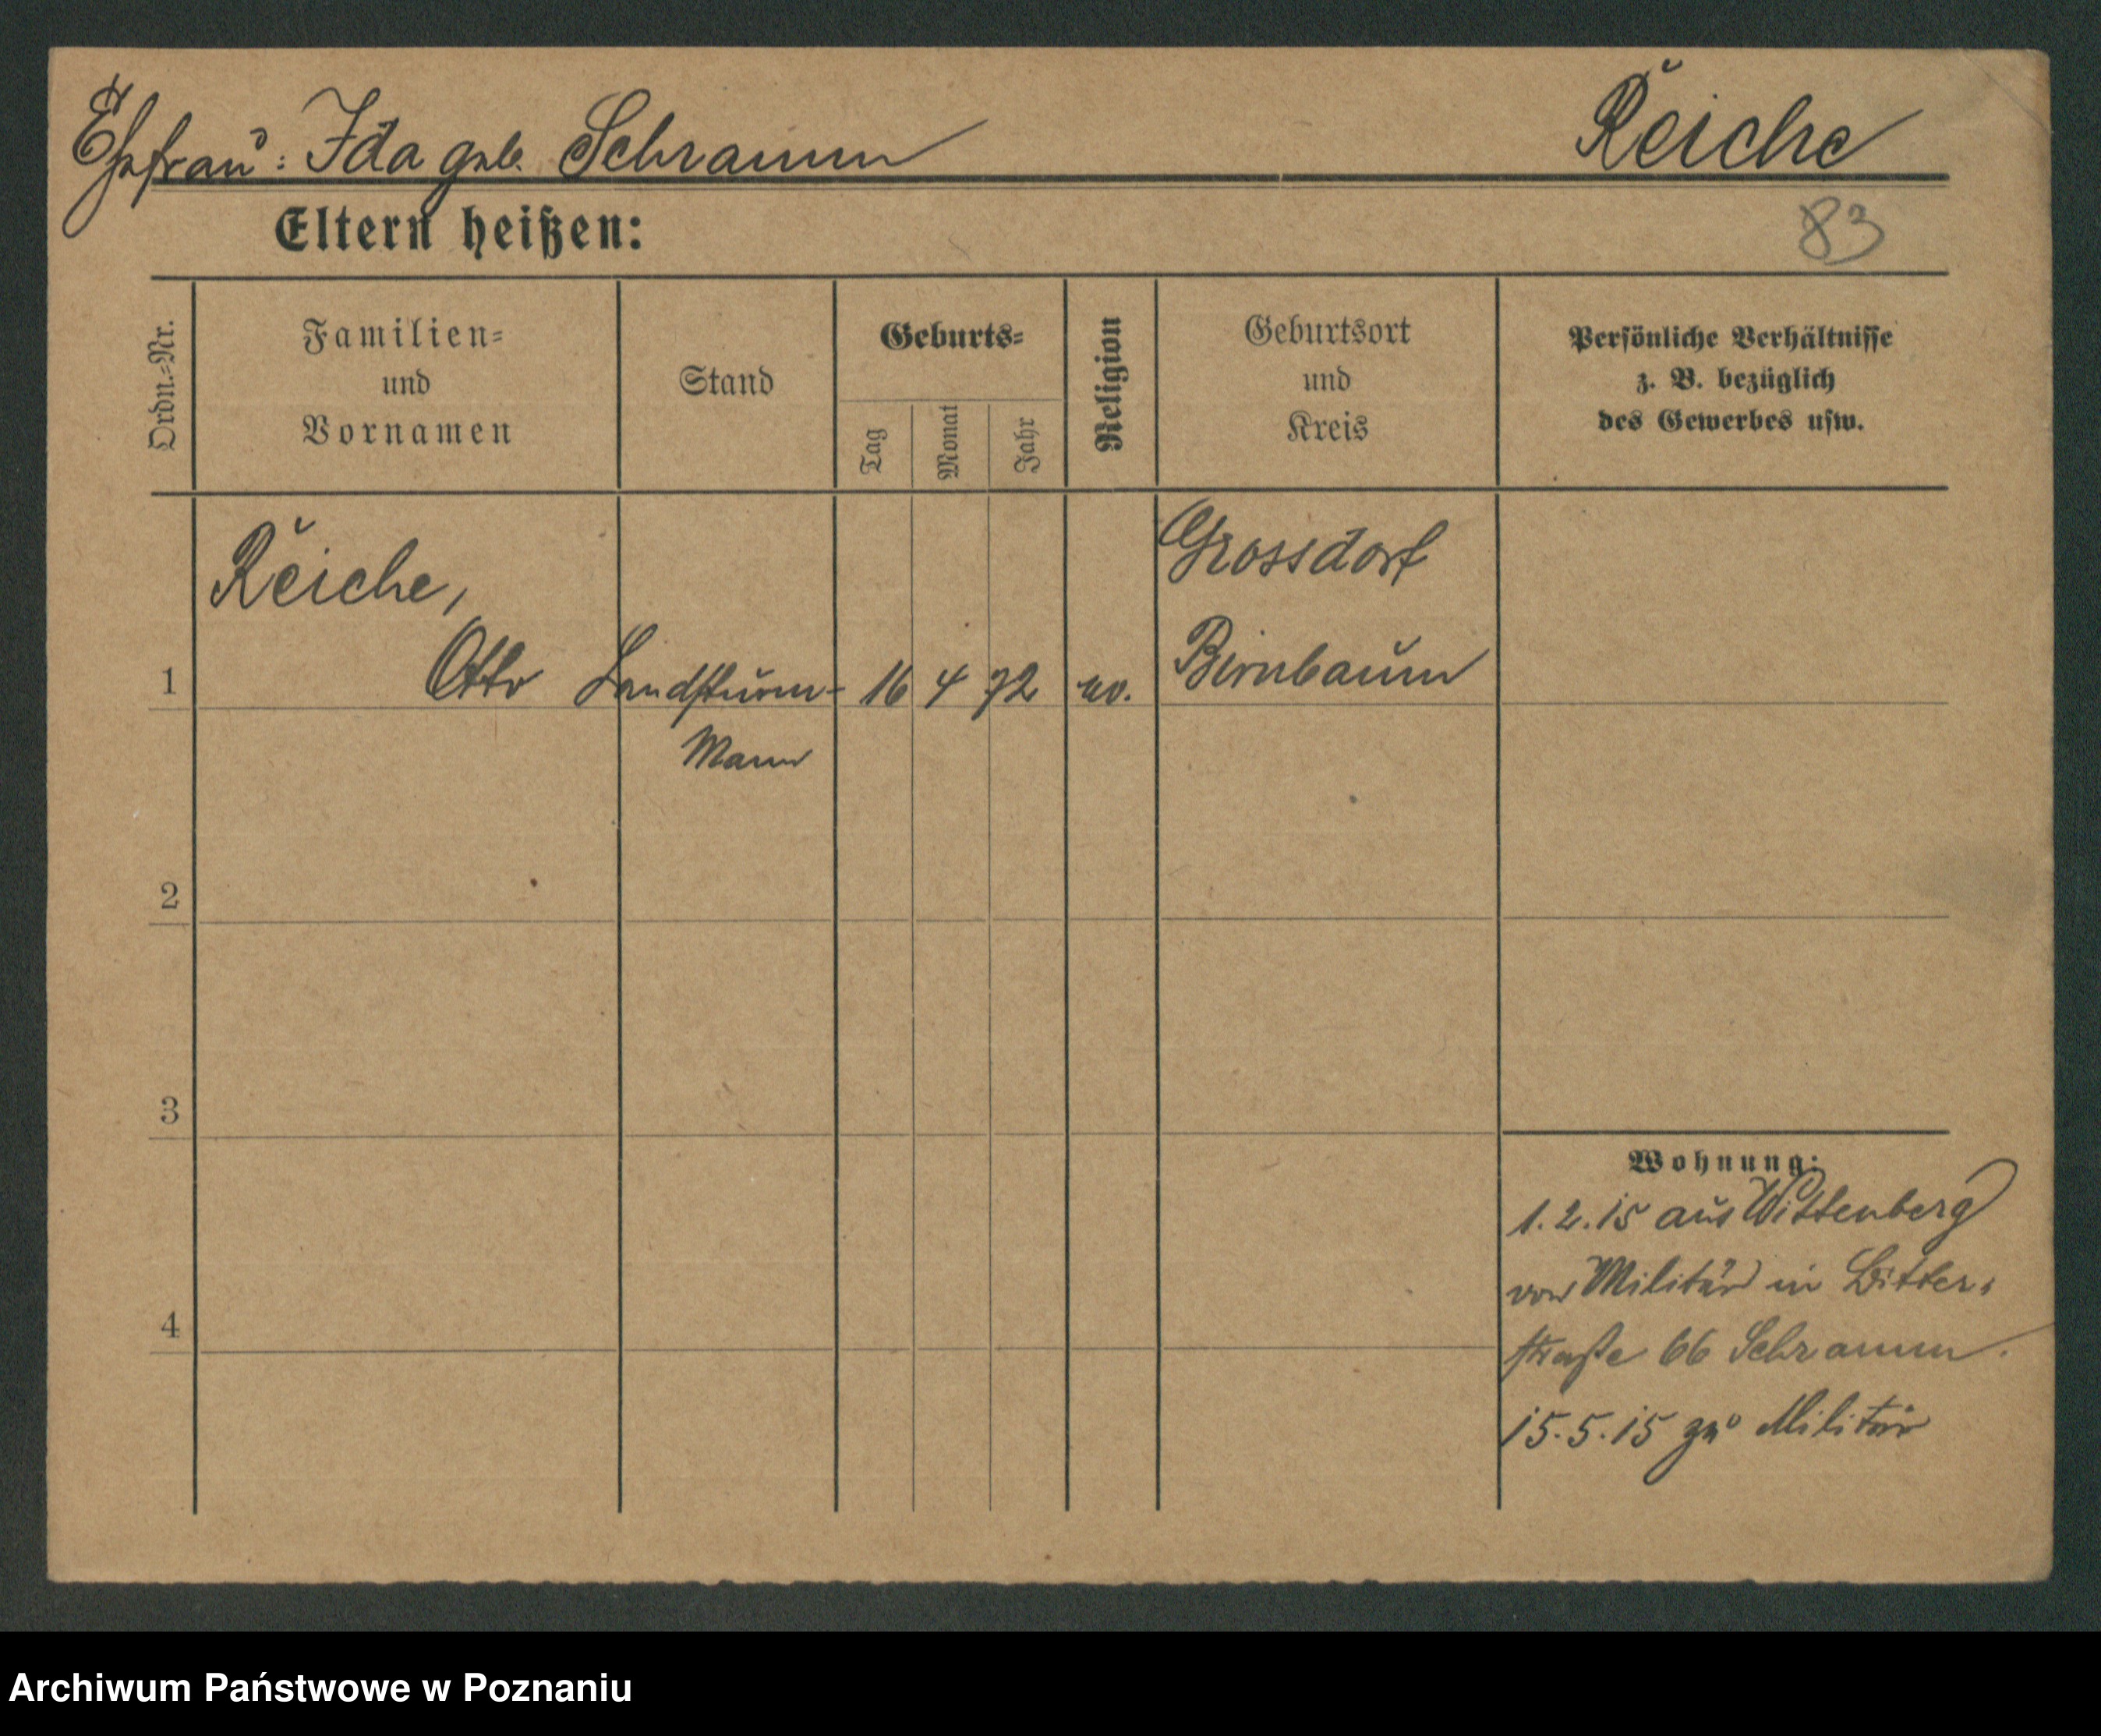 Ehefrau: Ida geb. Schramm Reiche
Eltern heißen: 83
Ordn.-Nr.
Familien-
und
Vornamen
Stand
Geburts-
Tag
Monat
Jahr
Religion
Geburtsort
und
Kreis
Persönliche Verhältnisse
z. B. bezüglich
des Gewerbes usw.
Reiche, Grossdorf
1 Otto Landsturm- 16 4 72 ev. Birnbaum
Mann
2
3
4
Wohnung:
1.2.15 aus Wittenberg
vom Militär in Bitter-
straße 66 Schramm.
15.5.15 zu Militär
Archiwum Państwowe w Poznaniu